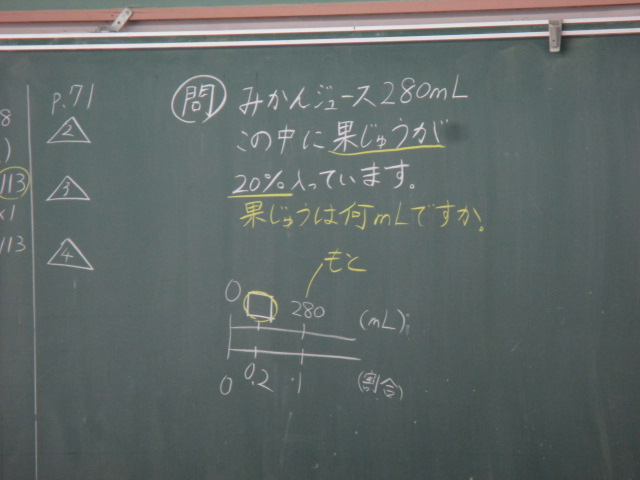 8
)
113
×1
113
p.71
2
3
4
問 みかんジュース280mL
この中に果じゅうが
20%入っています。
果じゅうは何mLですか。
もと
0 □ 280 (mL)
0 0.2 1 (割合)